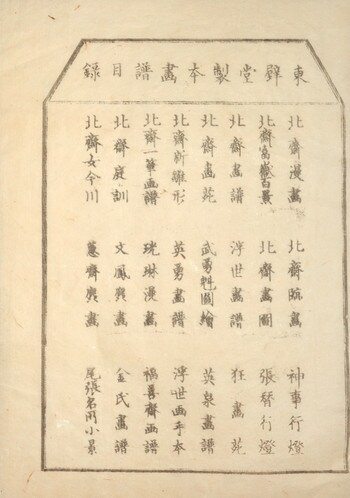 東壁堂製本畫譜目録
北齋漫畫
北齋富嶽百景
北齋畫譜
北齋畫苑
北齋新雛形
北齋一筆画譜
北齋庭訓
北齋女今川
北齋臨畫
北齋畫圖
浮世畫譜
武勇魁圖繪
英勇畫譜
琺琳漫畫
文鳳麁畫
蕙齋麁畫
神事行燈
張替行燈
狂畫苑
英泉畫譜
浮世画手本
福善齋画譜
金氏畫譜
尾張名所小景